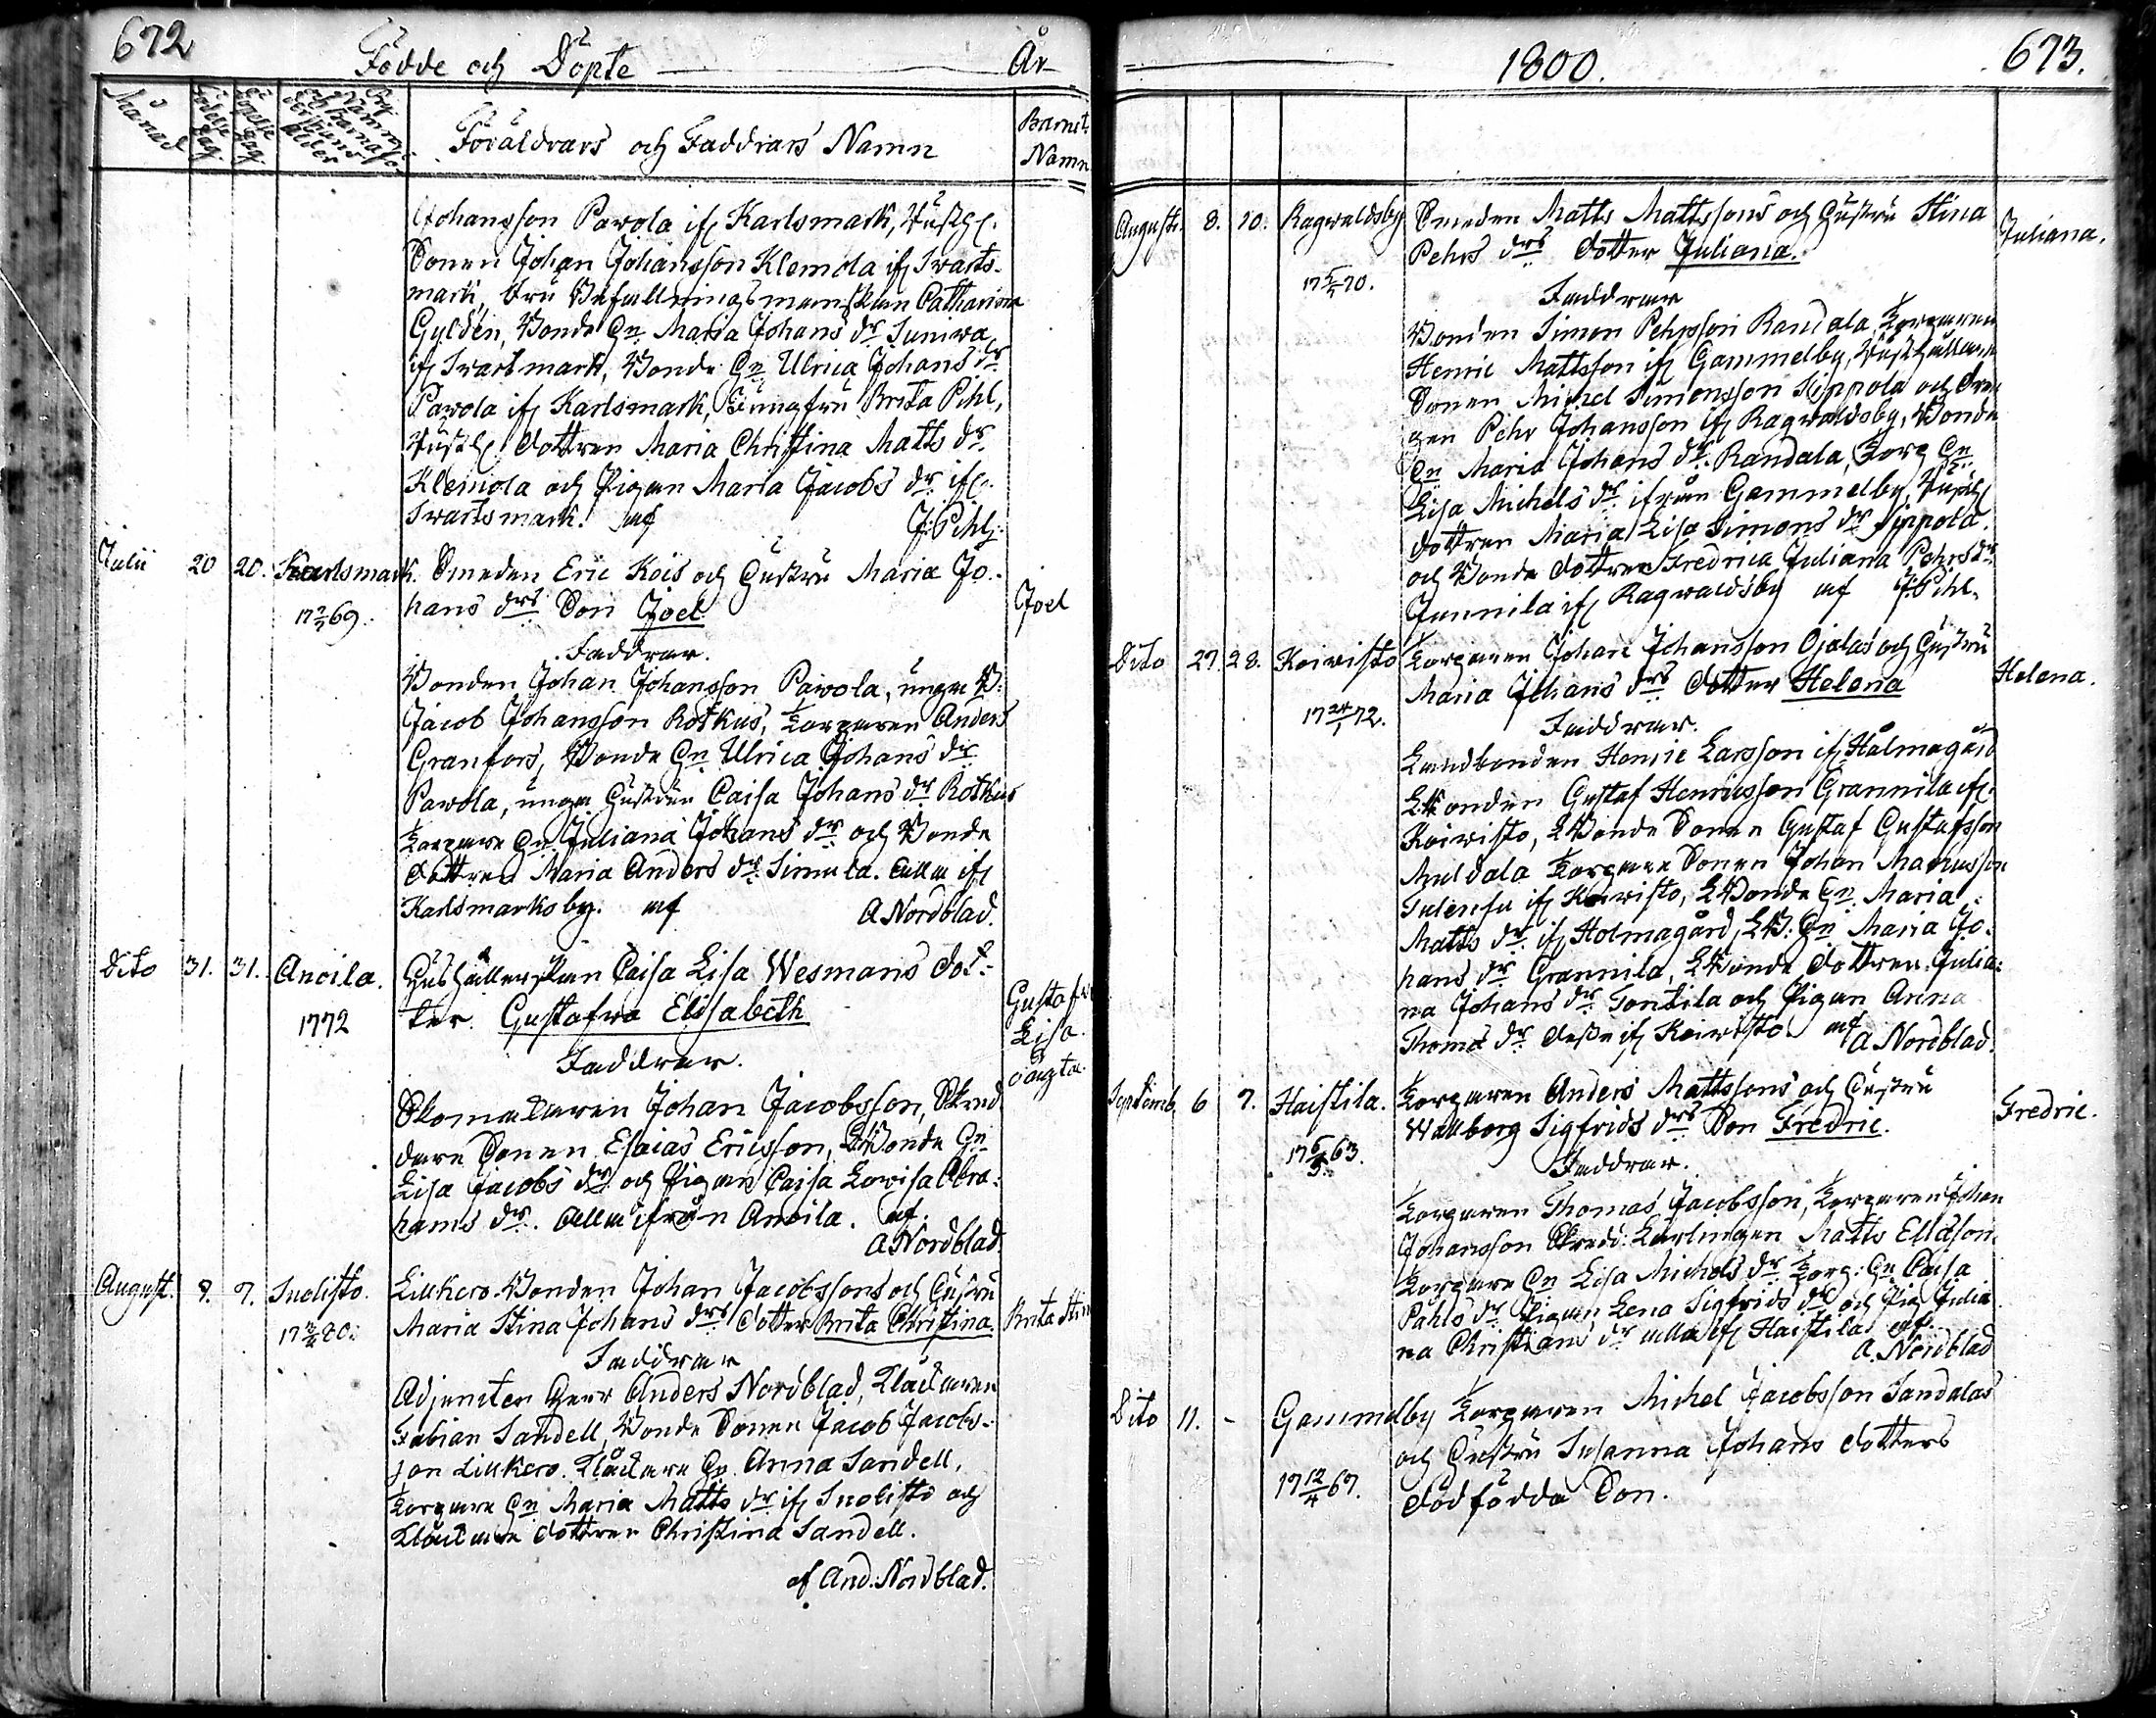 672
Födde och Döpte År
Månad
Födelse Dag
Döpelse Dag
Namn
ålder
Föräldrars och Faddrars Namn
Barnets
Namn
Johansson Pawola if Karlsmark,
Sonen Johan Johansson Klemola if Swarts-
mark, Fru Befallningsmanskan Catharina
Gyldén, Bonde Hn Maria Johans dr Juniwa
if Swartsmark, Bonde Hn Ulrica Johans dr
Pawola if Karlsmark, Jungfru Brita Pihl,
dottren Maria Christina Matts dr
Klemola och Pigan Maria Jacobs dr if
Swartsmark. af J: Pihl.
Julii 20 20. Karlsmark. Smeden Eric Kois och Hustru Maria Jo-
17 69. hans drs Son Joel Joel
Faddrar.
Bonden Johan Johansson Pawola, unga B:
Jacob Johansson Rotkus, Torparen Anders
Granfors, Bonde Hn Ulrica Johans dr
Pawola, unga Hustrun Caisa Johans dr Rotkus
Torpare Hn Juliana Johans dr och Bonde
dottren Maria Anders dr Simula. alla if
Karlsmarks by. af A Nordblad.
Dito 31. 31. Anoila. Hushållerskan Caisa Lisa Wesmans dot-
1772 ter Gustafwa Elisabeth Gustafwa
Lisa
oäugta
Faddrar.
Skomakaren Johan Jacobsson, Skred-
dare Sonen Esaias Ericsson, Bonde Hn
Lisa Jacobs dr och Pigan Caisa Lowisa Abra-
hams dr. Alla ifrån Anoila. af.
A Nordblad.
August. 7. 7. Suolisto. Liukero Bonden Johan Jacobssons och Hustru
17 80. Maria Stina Johans drs dotter Brita Christina. Brita Stina
Faddrar
Adjuncten Herr Anders Nordblad, Klockaren
Fabian Sandell, Bonde Sonen Jacob Jacobs-
son Liukero. Klockare Hn. Anna Sandell,
Torpare Hn Maria Matts dr if Suolisto och
Klockare dottren Christina Sandell.
af And: Nordblad.
1800. 673.
August. 8. 10. Ragwaldsby Smeden Matts Mattssons och Hustru Stina
Pehrs drs dotter Juliana. Juliana.
17 70.
Faddrar
Bonden Simon Pehrsson Randala, Torparen
Henric Mattsson if Gammelby,
Sonen Michel Simonsson Sippola och Dren-
gen Pehr Johansson if Ragwaldsby, Bonde
Hn Maria Johans dr Randala, Torp Hn
Lisa Michels dr ifrån Gammelby,
dottren Maria Lisa Simons dr Sippola.
och Bonde dottren Fredrica Juliana Pehrs dr
Junnila if Ragwaldsby af J: Pihl.
Dito 27. 28. Koiwisto Torparen Johan Johansson Ojalas och Hustru
Maria Johans drs dotter Helena Helena.
17 24/1 72.
Faddrar.
Landbonden Henric Larsson if Holmagård
LBonden Gustaf Henricsson Grannila if
Koiwisto, LBonde Sonen Gustaf Gustafsson
Torpare Sonen Johan
if Koiwisto, LBonde Hn Maria
Matts dr if Holmagård, LB: Hn Maria Jo-
hans dr Grannila, LBonde dottren Julia-
na Johans dr Tontila och Pigan Anna
Thomas dr if Koiwisto af
A Nordblad.
Septemb. 6 7. Haistila. Torparen Anders Mattssons och Hustru
Wallborg Sigfrids drs Son Fredric. Fredric.
17 6/5 63.
Faddrar.
Torparen Thomas Jacobsson, Torparen Johan
Johansson Skredd: Lärlingen Matts
Torpare Hn Lisa Michels dr Torp: Hn Caisa
Påhls dr Pigan Lena Sigfrids dr och Pig Julia-
na Christians dr alla if Haistila af.
A. Nordblad
Dito 11. - Gammelby Torparen Michel Jacobsson Sandalas
och Hustru Susanna Johans dotters
17 12/4 67. dödfödda Son.